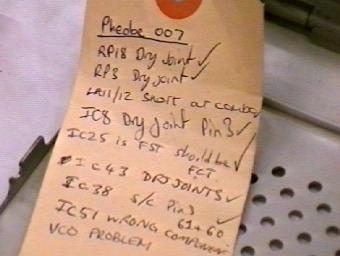 Pheobe 007
RP18 Dry Joint ✓
RP3 Dry Joint ✓
11/12 SHORT OR
IC8 Dry Joint Pin 3 ✓
IC25 is FST should be ✓
FCT.
IC43 DRY JOINTS ✓
IC38 S/C Pin 3 ✓
61+60
IC51 WRONG COMPONENT
VCO PROBLEM